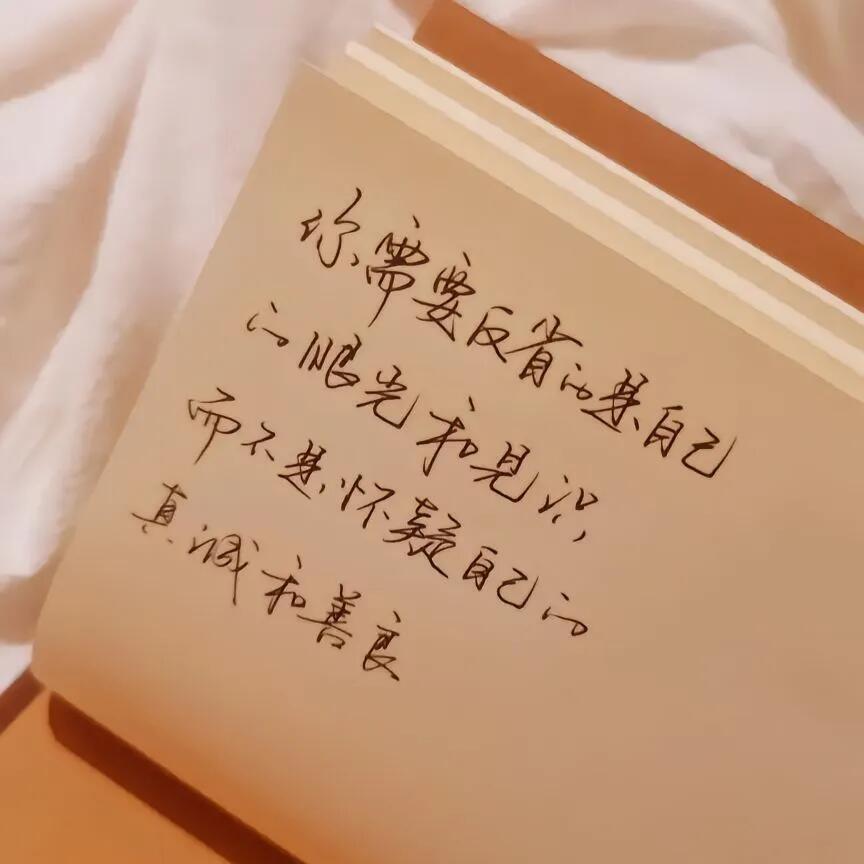 你需要反省的是自己
的眼光和见识
而不是怀疑自己的
真诚和善良